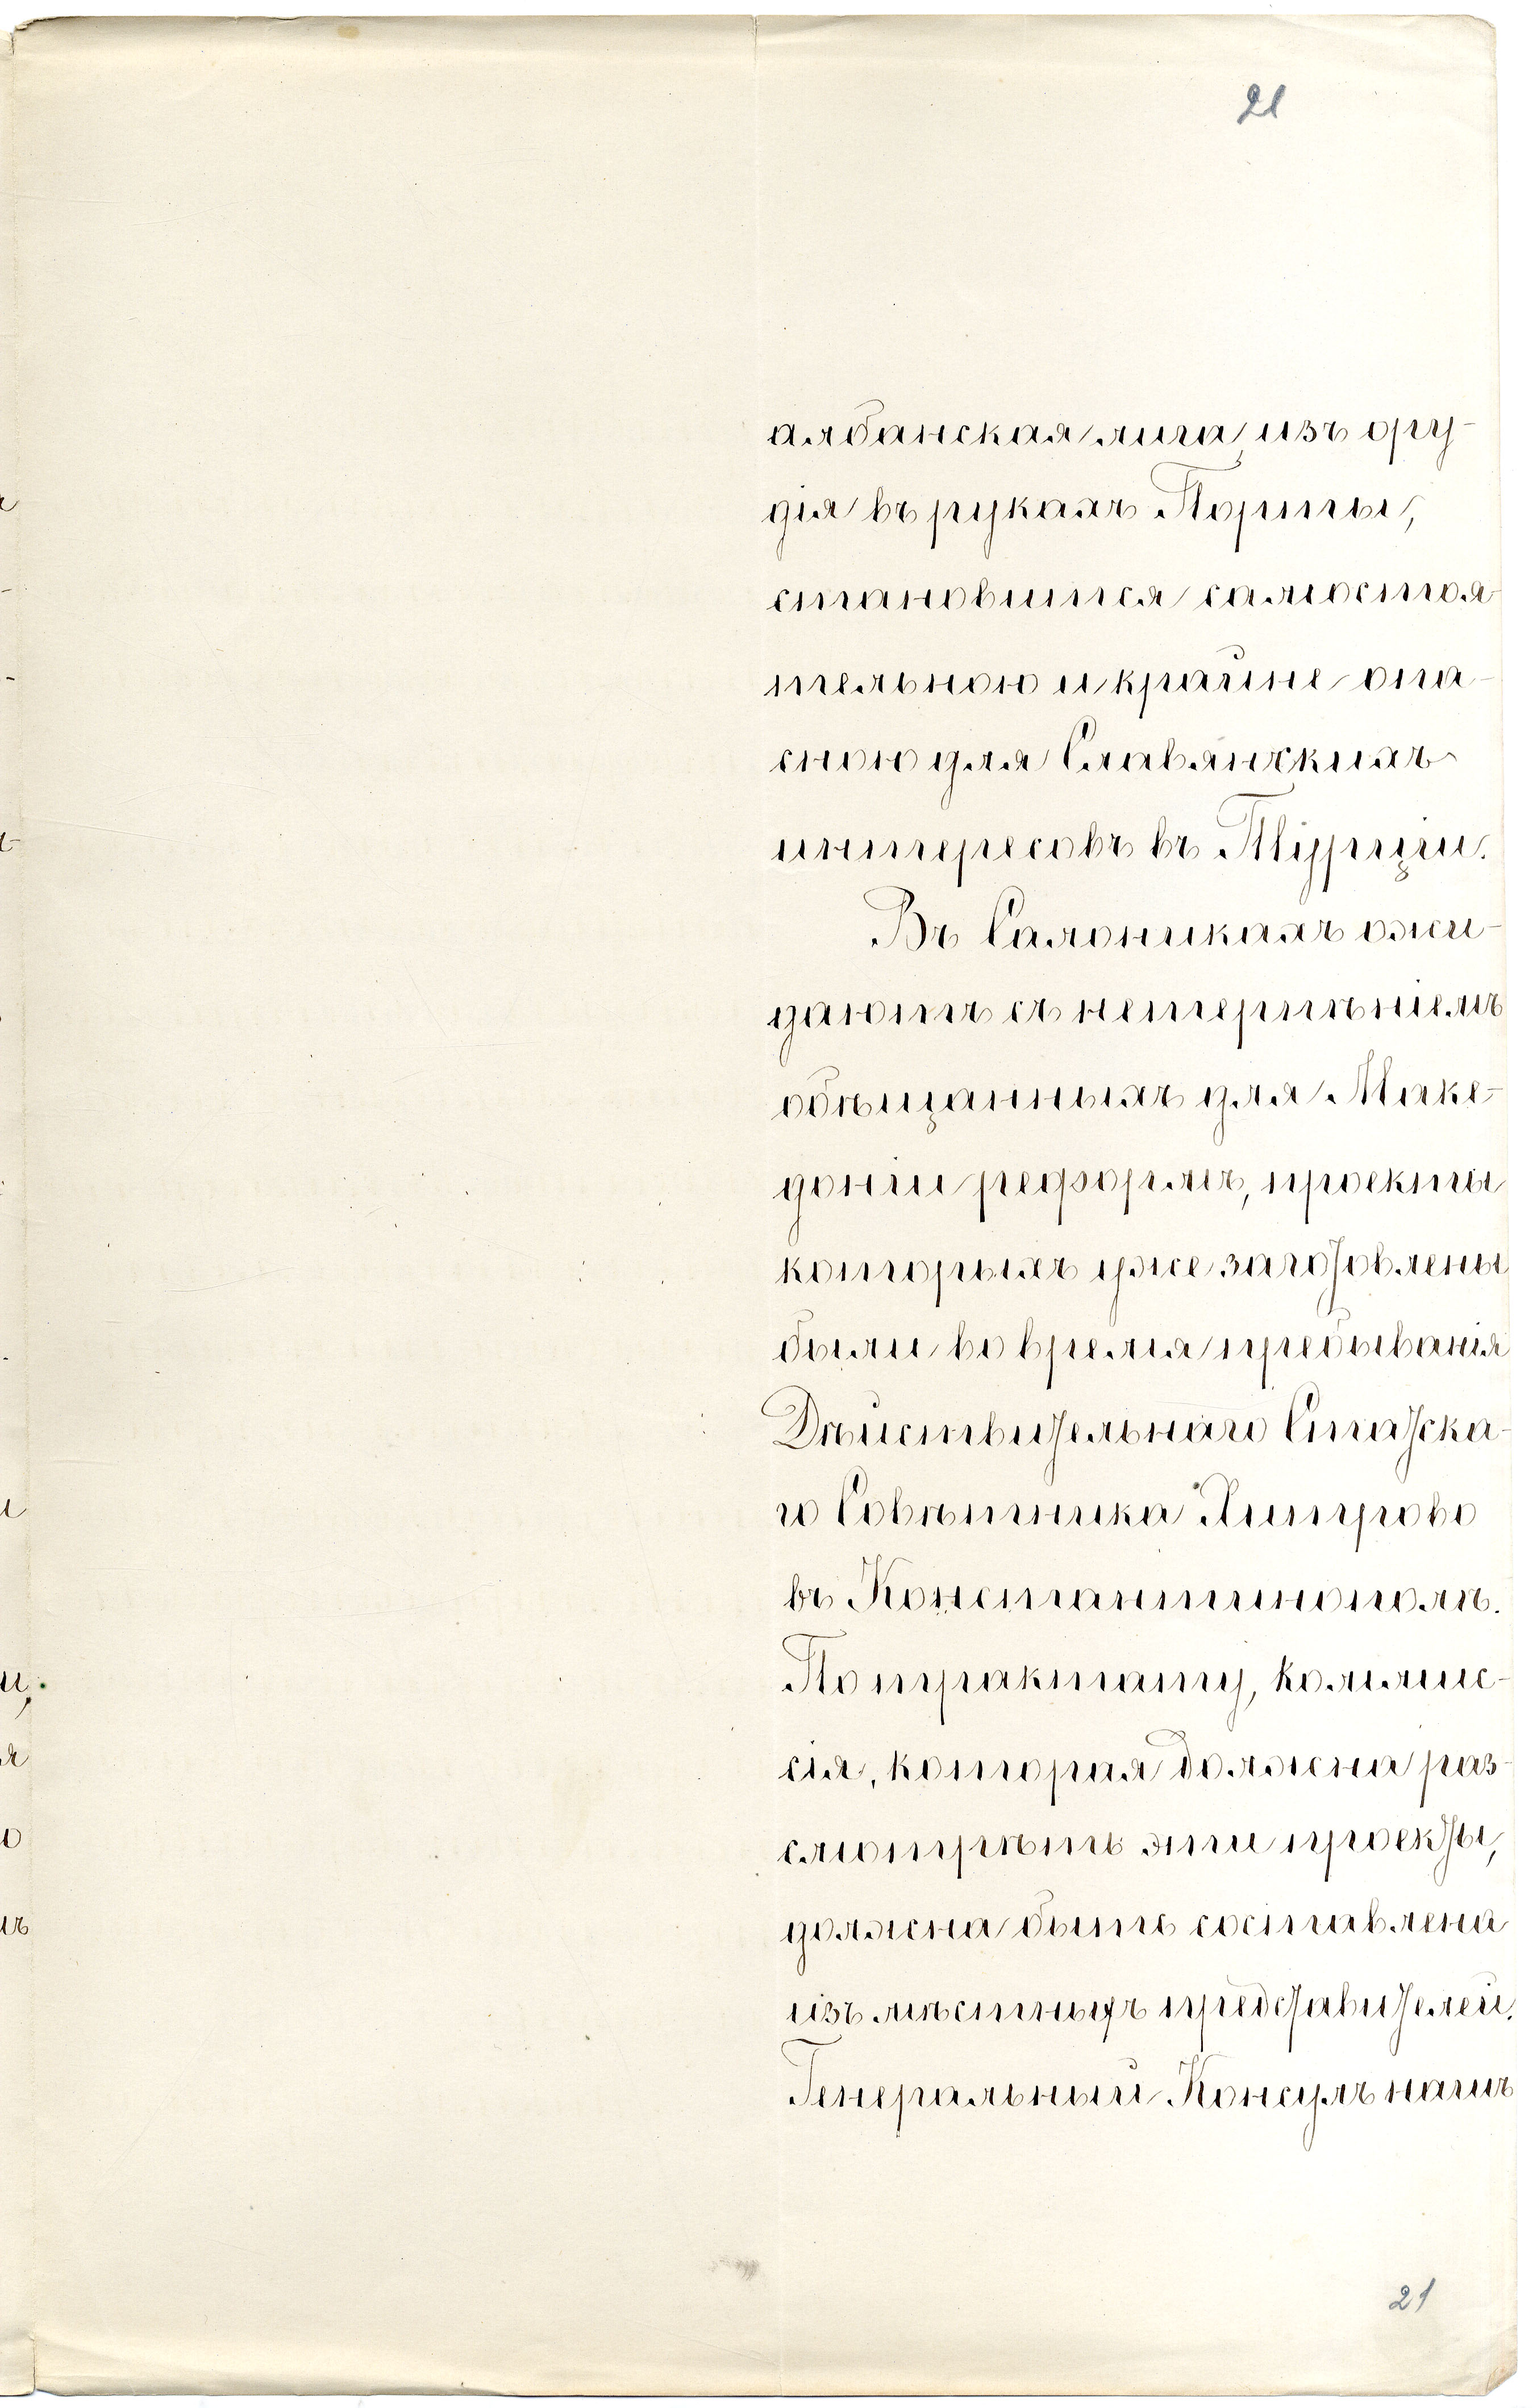 21
албанская лига, изъ ору-
дія въ рукахъ Порты,
становится самостоя-
тельною и крайне опа-
сною для Славянскихъ
интересовъ въ Турціи.
Въ Салоникахъ ожи-
даютъ съ нетерпѣніемъ
обѣщанныхъ для Маке-
доніи реформъ, проекты
которыхъ уже заготовлены
были во время пребыванія
Дѣйствительнаго Статска-
го Совѣтника Хитрово
въ Константинополѣ.
По трактату, коммис-
сія, которая должна раз-
смотрѣть эти проекты,
должна быть составлена
изъ мѣстныхъ представителей.
Генеральный Консулъ нашъ
21